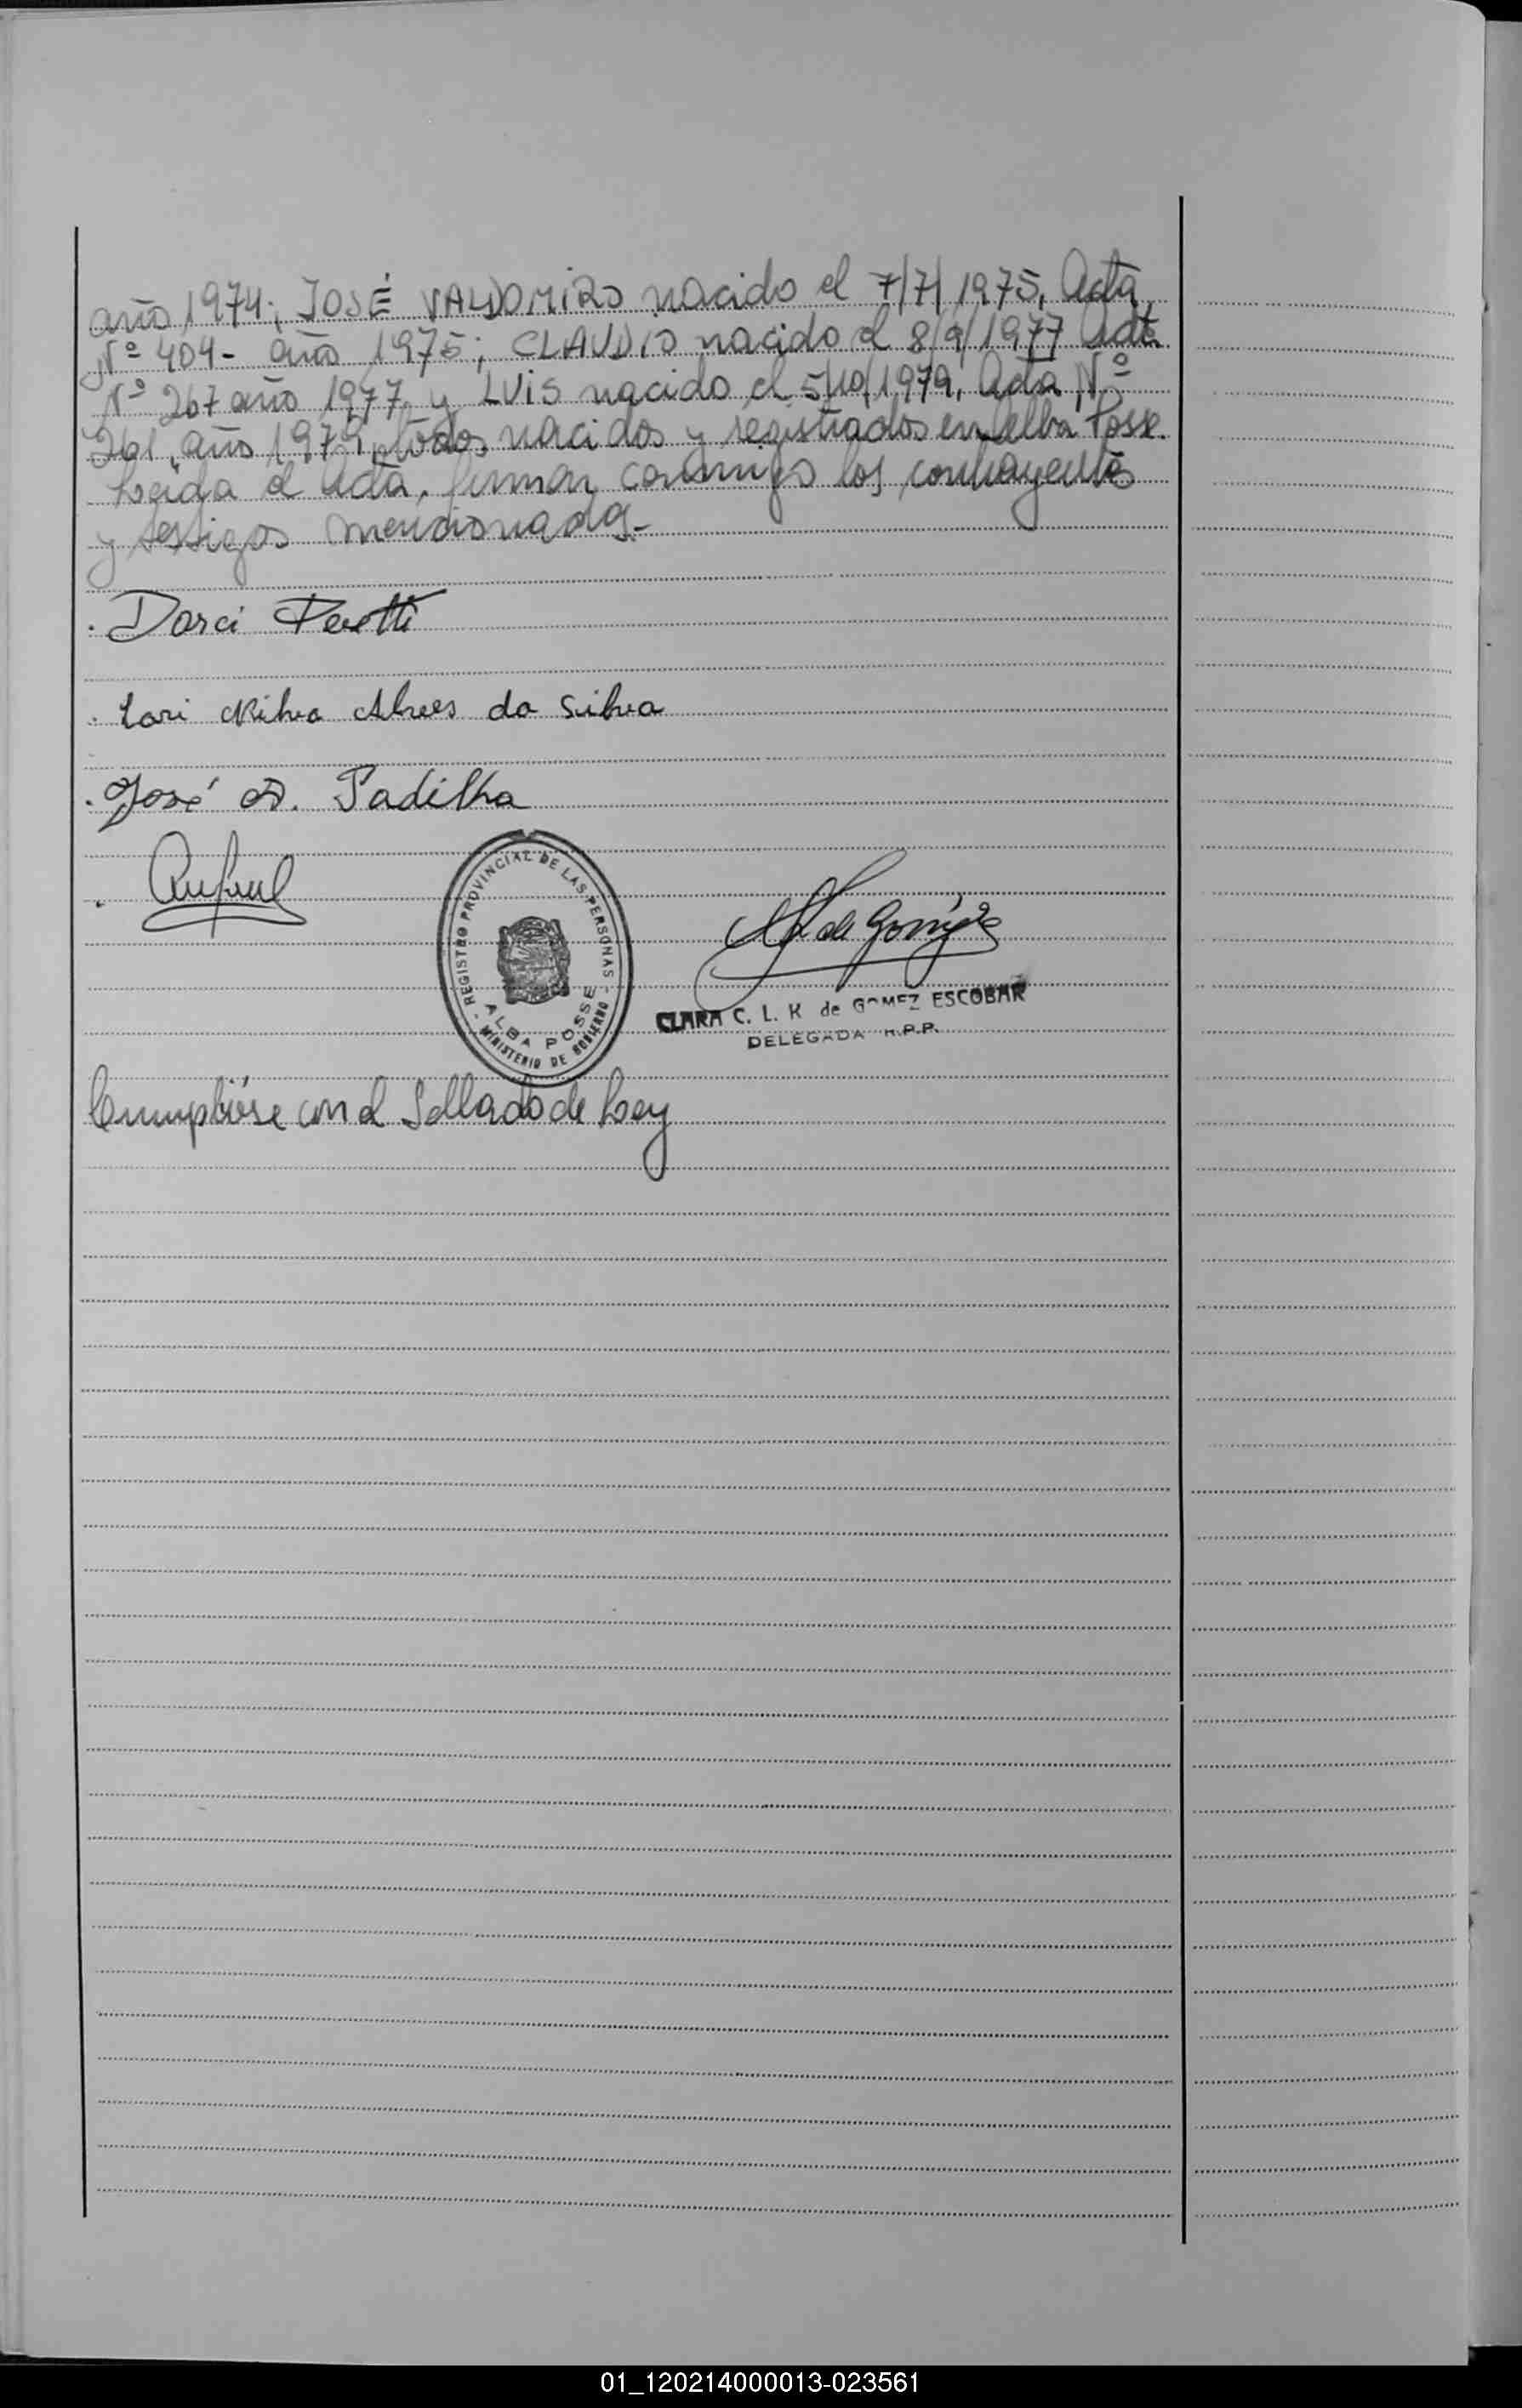 año 1974; JOSÉ VALDOMIRO nacido el 7/7/1975, Acta
Nº 404- año 1975; CLAUDIO nacido el 8/9/1977 Acta
Nº 267 año 1977 y LUIS nacido el 5/10/1979, Acta Nº
261, año 1979, todos nacidos y registrados en Alba Posse.
Leida el Acta, firman conmigo los contrayentes
y testigos mencionados.-
Darci Peretti
Lari Nilva Alves da Silva
José D. Padilha
REGISTRO PROVINCIAL DE LAS PERSONAS - MINISTERIO DE GOBIERNO -
ALBA POSSE
de Gomez
CLARA C. L. K de GOMEZ ESCOBAR
DELEGADA R.P.P.
Cumplióse con el Sellado de Ley
01_120214000013-023561